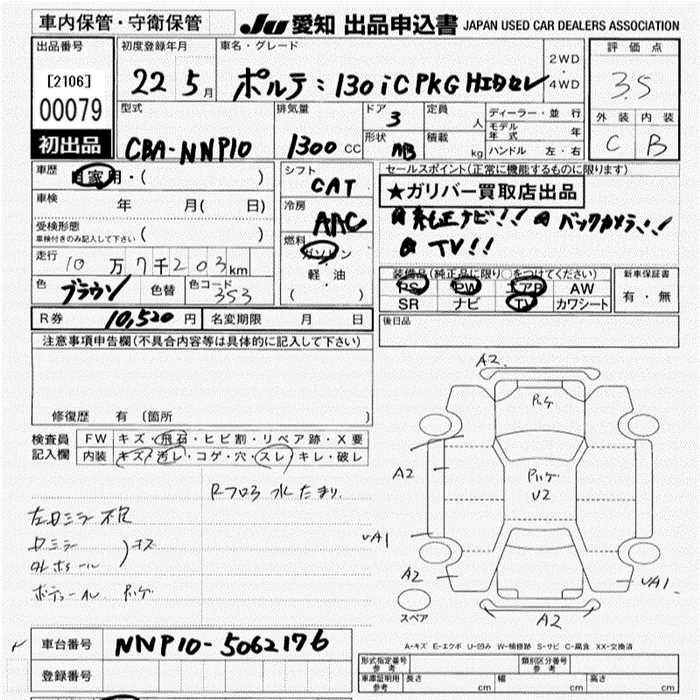 車内保管・守衛保管
JU 愛知 出品申込書 JAPAN USED CAR DEALERS ASSOCIATION
出品番号
[2106]
00079
初出品
初度登録年月
22 5月
車名・グレード
ポルテ:130iC PKG HIDセレ
2WD
・
4WD
評価点
3.5
外装 内装
C B
型式
CBA-NNP10
排気量
1300 CC
ドア
3
形状
HB
定員
人
積載
kg
ディーラー・並 行
モデル年式 年
ハンドル 左・右
車歴
自家用・( )
車検
年 月( 日)
受検形態
車検付きのみ記入して下さい ( )
走行
10万7千203km
色
ブラウン
色替
色コード
353
シフト
CAT
冷房
AAC
燃料
ガソリン
軽 油
( )
セールスポイント(正常に機能するものに限ります)
★ガリバー買取店出品
純正ナビ!! バックカメラ!!
TV!!
装備品(純正品に限り○をつけてください)
PS PW エアB AW
SR ナビ TV カワシート
新車保証書
有・無
R券 10,520円 名変期限 月 日
後日品
注意事項申告欄(不具合内容等は具体的に記入して下さい)
修復歴 有 〔箇所 〕
検査員
記入欄
FW キズ・飛石・ヒビ割・リペア跡・X要
内装 キズ・汚レ・コゲ・穴・スレ・キレ・破レ
Rフロア 水たまり
左ドミラー不良
ドミラー
キズ
A2
A2
U2
A2
A2
UA1
UA1
スペア
A-キズ E-エクボ U-凹み W-補修跡 S-サビ C-腐食 XX-交換済
車台番号 NNP10-5062176
登録番号
形式指定番号
参 考
類別区分番号
参 考
車庫証明用
参 考
長さ cm 幅 cm 高さ cm